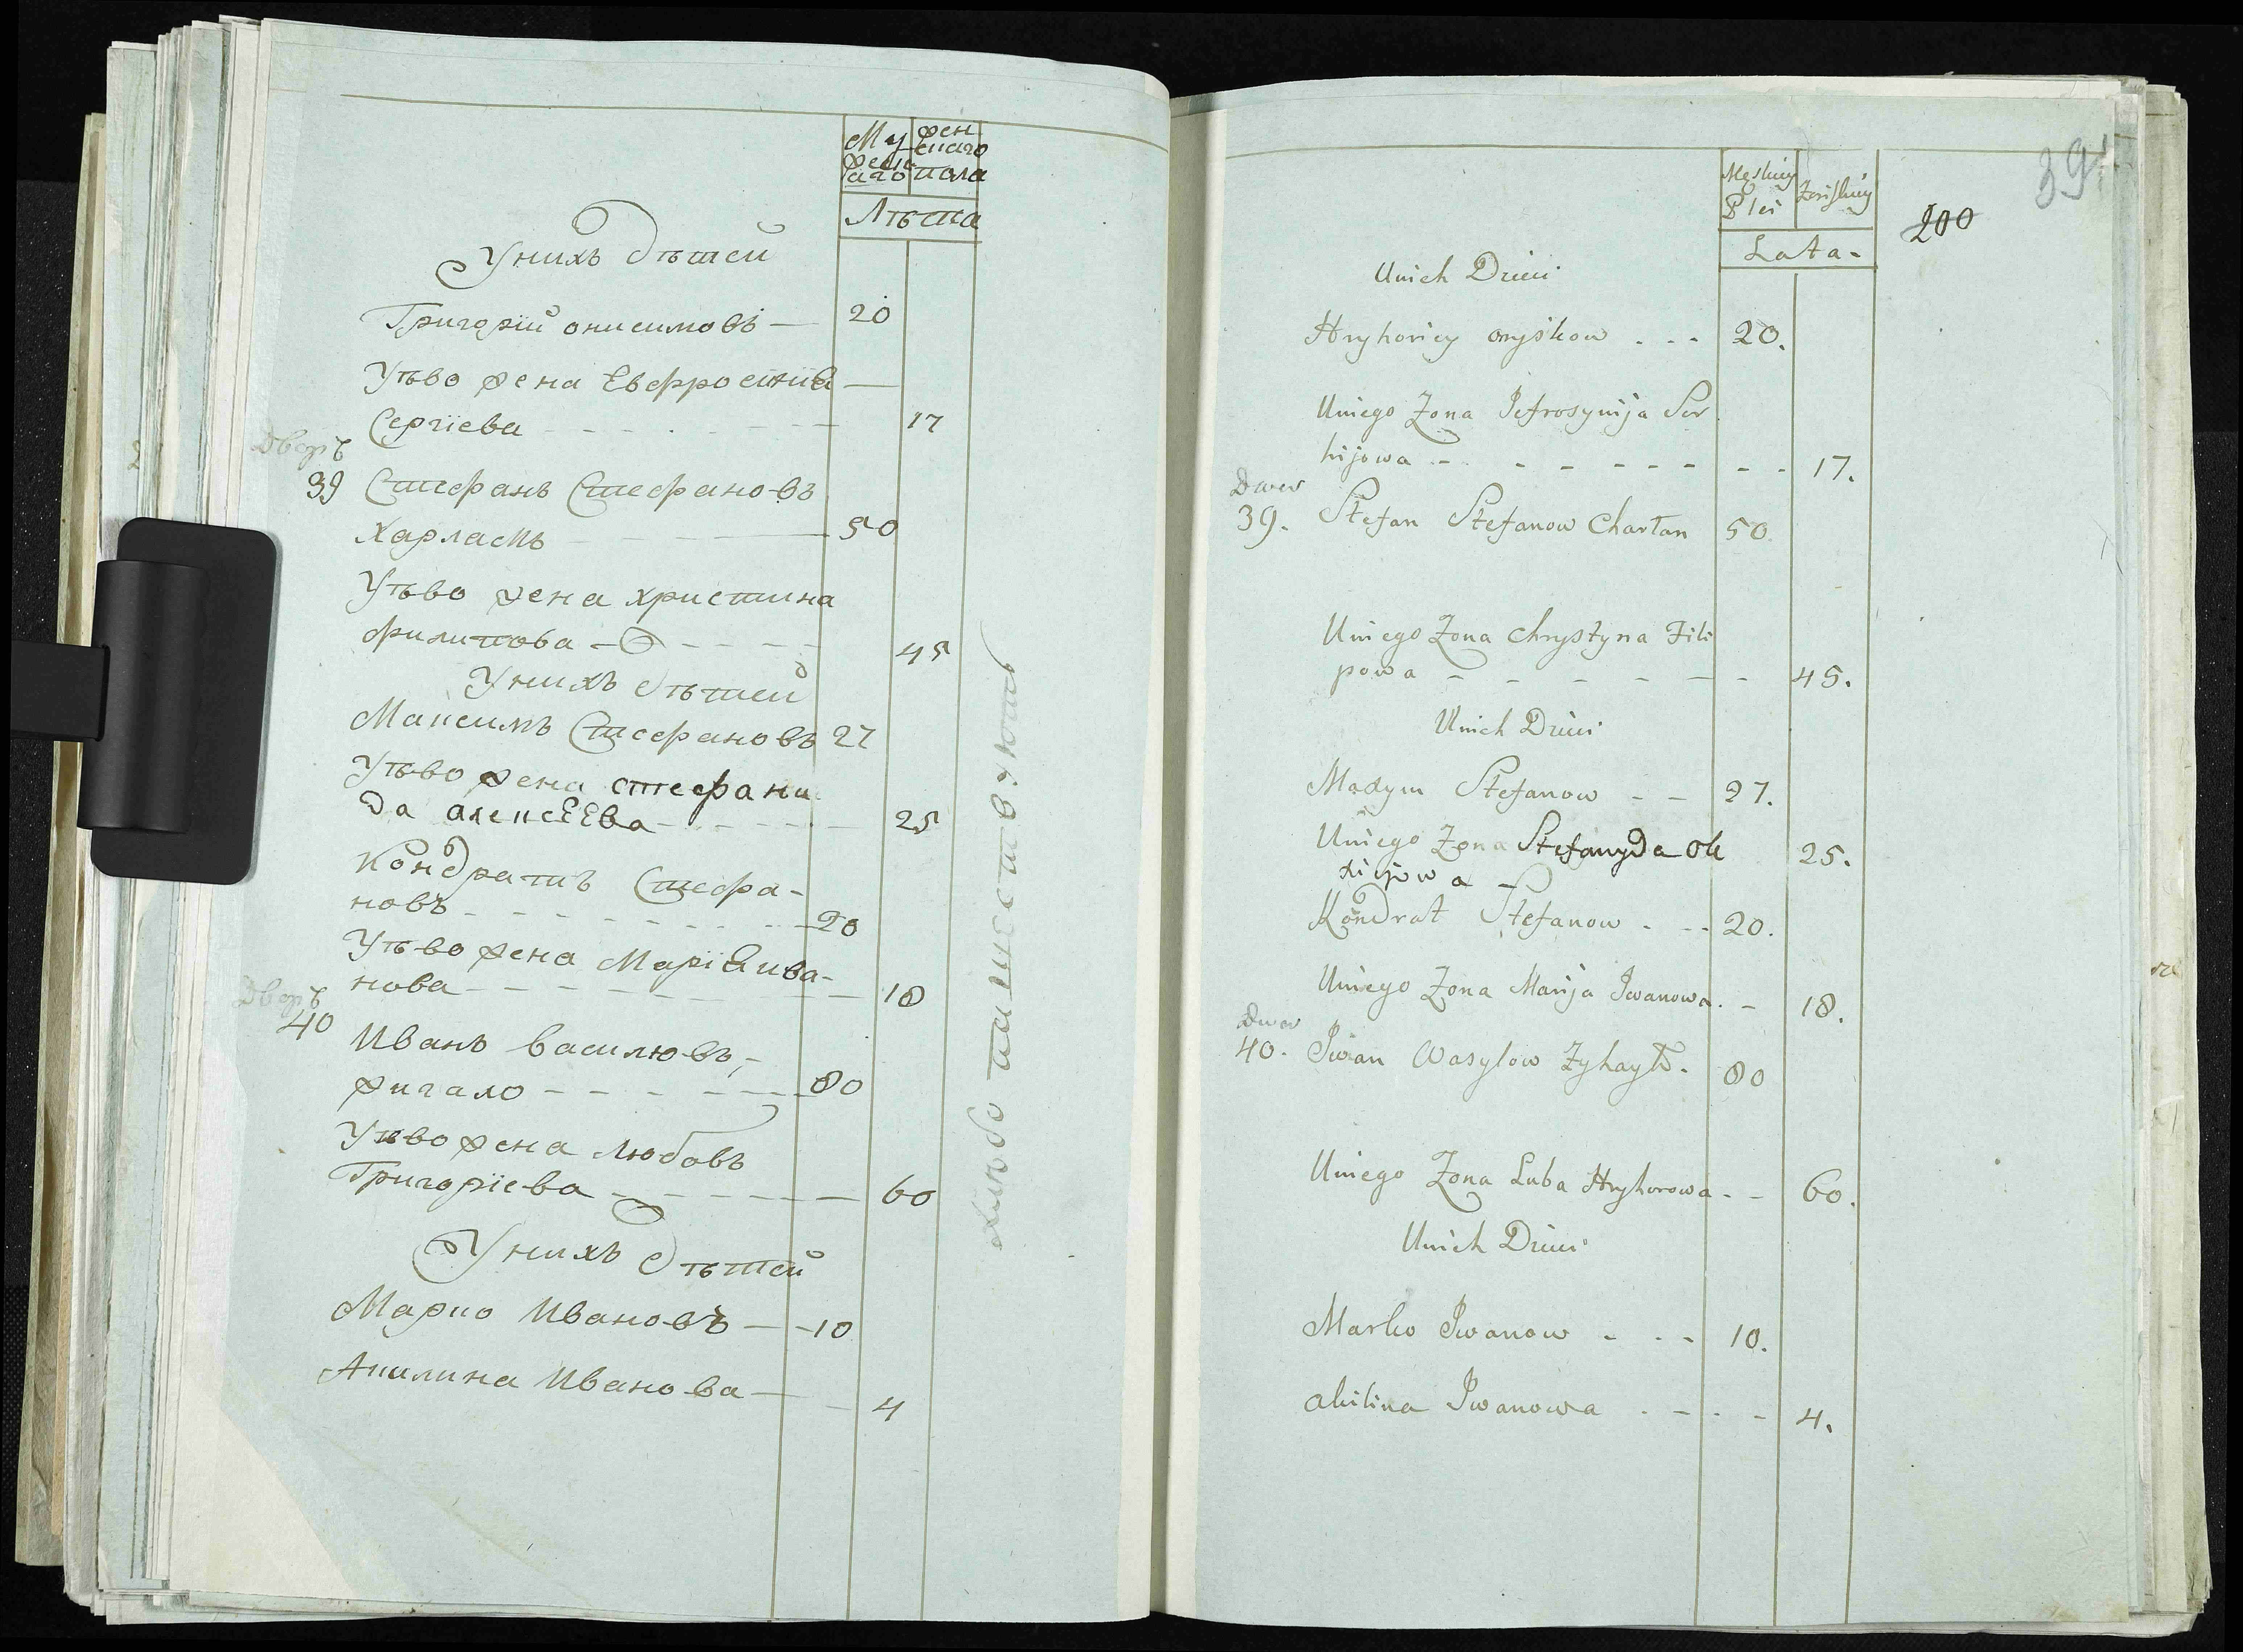 Мужескаго
женскаго
пола
Лѣта
У нихъ дѣтей
Григорій онисимовъ — 20
У нѣво жена Евфросинія —
Сергіева - - - - 17
Дворъ
39 Стефанъ Стефановъ
Харламъ - - - 50
У нѣво жена христина
филипова - - - - 45
У нихъ дѣтей
Максимъ Стефановъ 27
У нѣво жена стефани
да алексЕЕва - - - - 25
Кондратъ Стефа-
новъ - - - - - 20
У нѣво жена Марія ива-
нова - - - - - 18
Дворъ
40
Иванъ василювъ,-
жигало - - - - - 80
У нѣво жена любовъ
Григоріева - - - - - 60
У нихъ дѣтей
Марко Ивановъ — 10
Акилина Иванова — 4
Męskiey
Płci
Żeńskiey
Lata -
200
391
U nich Dzieci
Hryhoriey onyśkow - - - 20.
U niego Zona Jefrosynija Ser
hijowa - - - - - - - - 17.
Dwor
39. Stefan Stefanow Charłan 50.
U niego Zona Chrystyna Fili
powa - - - - - - 45.
U nich Dzieci
Maxym Stefanow - - 27.
U niego Zona Stefanyda Ole 25.
xiijowa -
Kondrat Stefanow - - - 20.
U niego Zona Marija Iwanowa. - 18.
Dwor
40. Iwan Wasylow Zyhayło. 80
U niego Zona Luba Hryhorowa - - 60.
U nich Dzieci
Marko Iwanow - - - 10.
akilina Iwanowa - - - - 4.